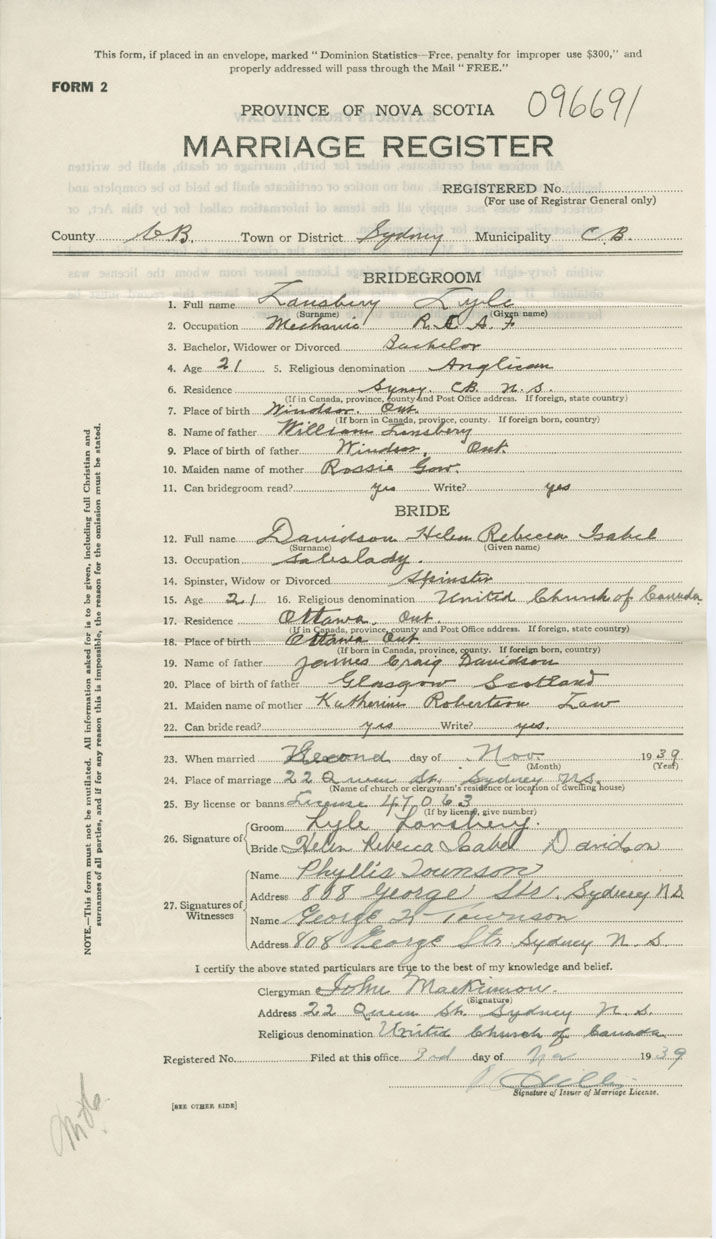 This form, if placed in an envelope, marked "Dominion Statistics—Free, penalty for improper use $300," and
properly addressed will pass through the Mail "FREE."
FORM 2
096691
PROVINCE OF NOVA SCOTIA
MARRIAGE REGISTER
REGISTERED No.
(For use of Registrar General only)
County C.B. Town or District Sydney Municipality C.B.
BRIDEGROOM
1. Full name Lansbery Lyle
(Surname) (Given name)
2. Occupation Mechanic R.C.A.F
3. Bachelor, Widower or Divorced Bachelor
4. Age 21 5. Religious denomination Anglican
6. Residence Syney. CB. N.S.
(If in Canada, province, county and Post Office address. If foreign, state country)
7. Place of birth Windsor. Ont.
(If born in Canada, province, county. If foreign born, country)
8. Name of father William Lansbery
9. Place of birth of father Windsor, Ont.
10. Maiden name of mother Rossie Gow.
11. Can bridegroom read? yes Write? yes
BRIDE
12. Full name Davidson Helen Rebecca Isabel
(Surname) (Given name)
13. Occupation saleslady.
14. Spinster, Widow or Divorced Spinster
15. Age 21 16. Religious denomination United Church of Canada
17. Residence Ottawa, Ont.
(If in Canada, province, county and Post Office address. If foreign, state country)
18. Place of birth Ottawa Ont
(If born in Canada, province, county. If foreign born, country)
19. Name of father James Craig Davidson
20. Place of birth of father Glasgow Scotland
21. Maiden name of mother Katherine Robertson Law
22. Can bride read? yes Write? yes.
23. When married Second day of Nov. 1939
(Month) (Year)
24. Place of marriage 22 Queen St. Sydney NS.
(Name of church or clergyman's residence or location of dwelling house)
25. By license or banns License 47063
(If by license, give number)
26. Signature of
Groom Lyle Lansbery.
Bride Helen Rebecca Isabel Davidson
27. Signatures of Witnesses
Name Phyllis Townson
Address 808 George Str. Sydney N.S.
Name George H Townson
Address 808 George Str Sydney N.S.
I certify the above stated particulars are true to the best of my knowledge and belief.
Clergyman John MacKinnon.
(Signature)
Address 22 Queen St. Sydney N.S.
Religious denomination United Church of Canada
Registered No. Filed at this office 3rd day of Nov 1939
Signature of Issuer of Marriage License.
[SEE OTHER SIDE]
NOTE.—This form must not be mutilated. All information asked for is to be given, including full Christian and
surnames of all parties, and if for any reason this is impossible, the reason for the omission must be stated.